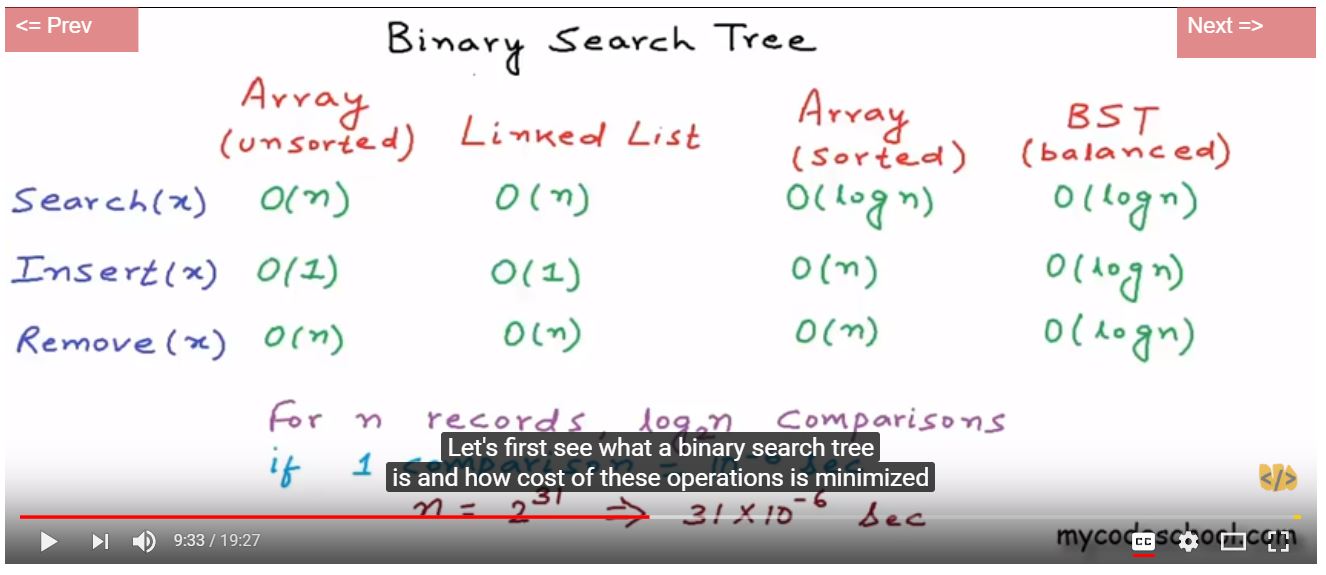 <= Prev
Next =>
Binary Search Tree
Array (unsorted) Linked List Array (sorted) BST (balanced)
Search(x) O(n) O(n) O(log n) O(log n)
Insert(x) O(1) O(1) O(n) O(log n)
Remove(x) O(n) O(n) O(n) O(log n)
For n records, log₂n comparisons
if 1 comparison = 10⁻⁶ sec
Let's first see what a binary search tree
is and how cost of these operations is minimized
n = 2³¹ => 31 X 10⁻⁶ sec
9:33 / 19:27
CC
</>
mycodeschool.com